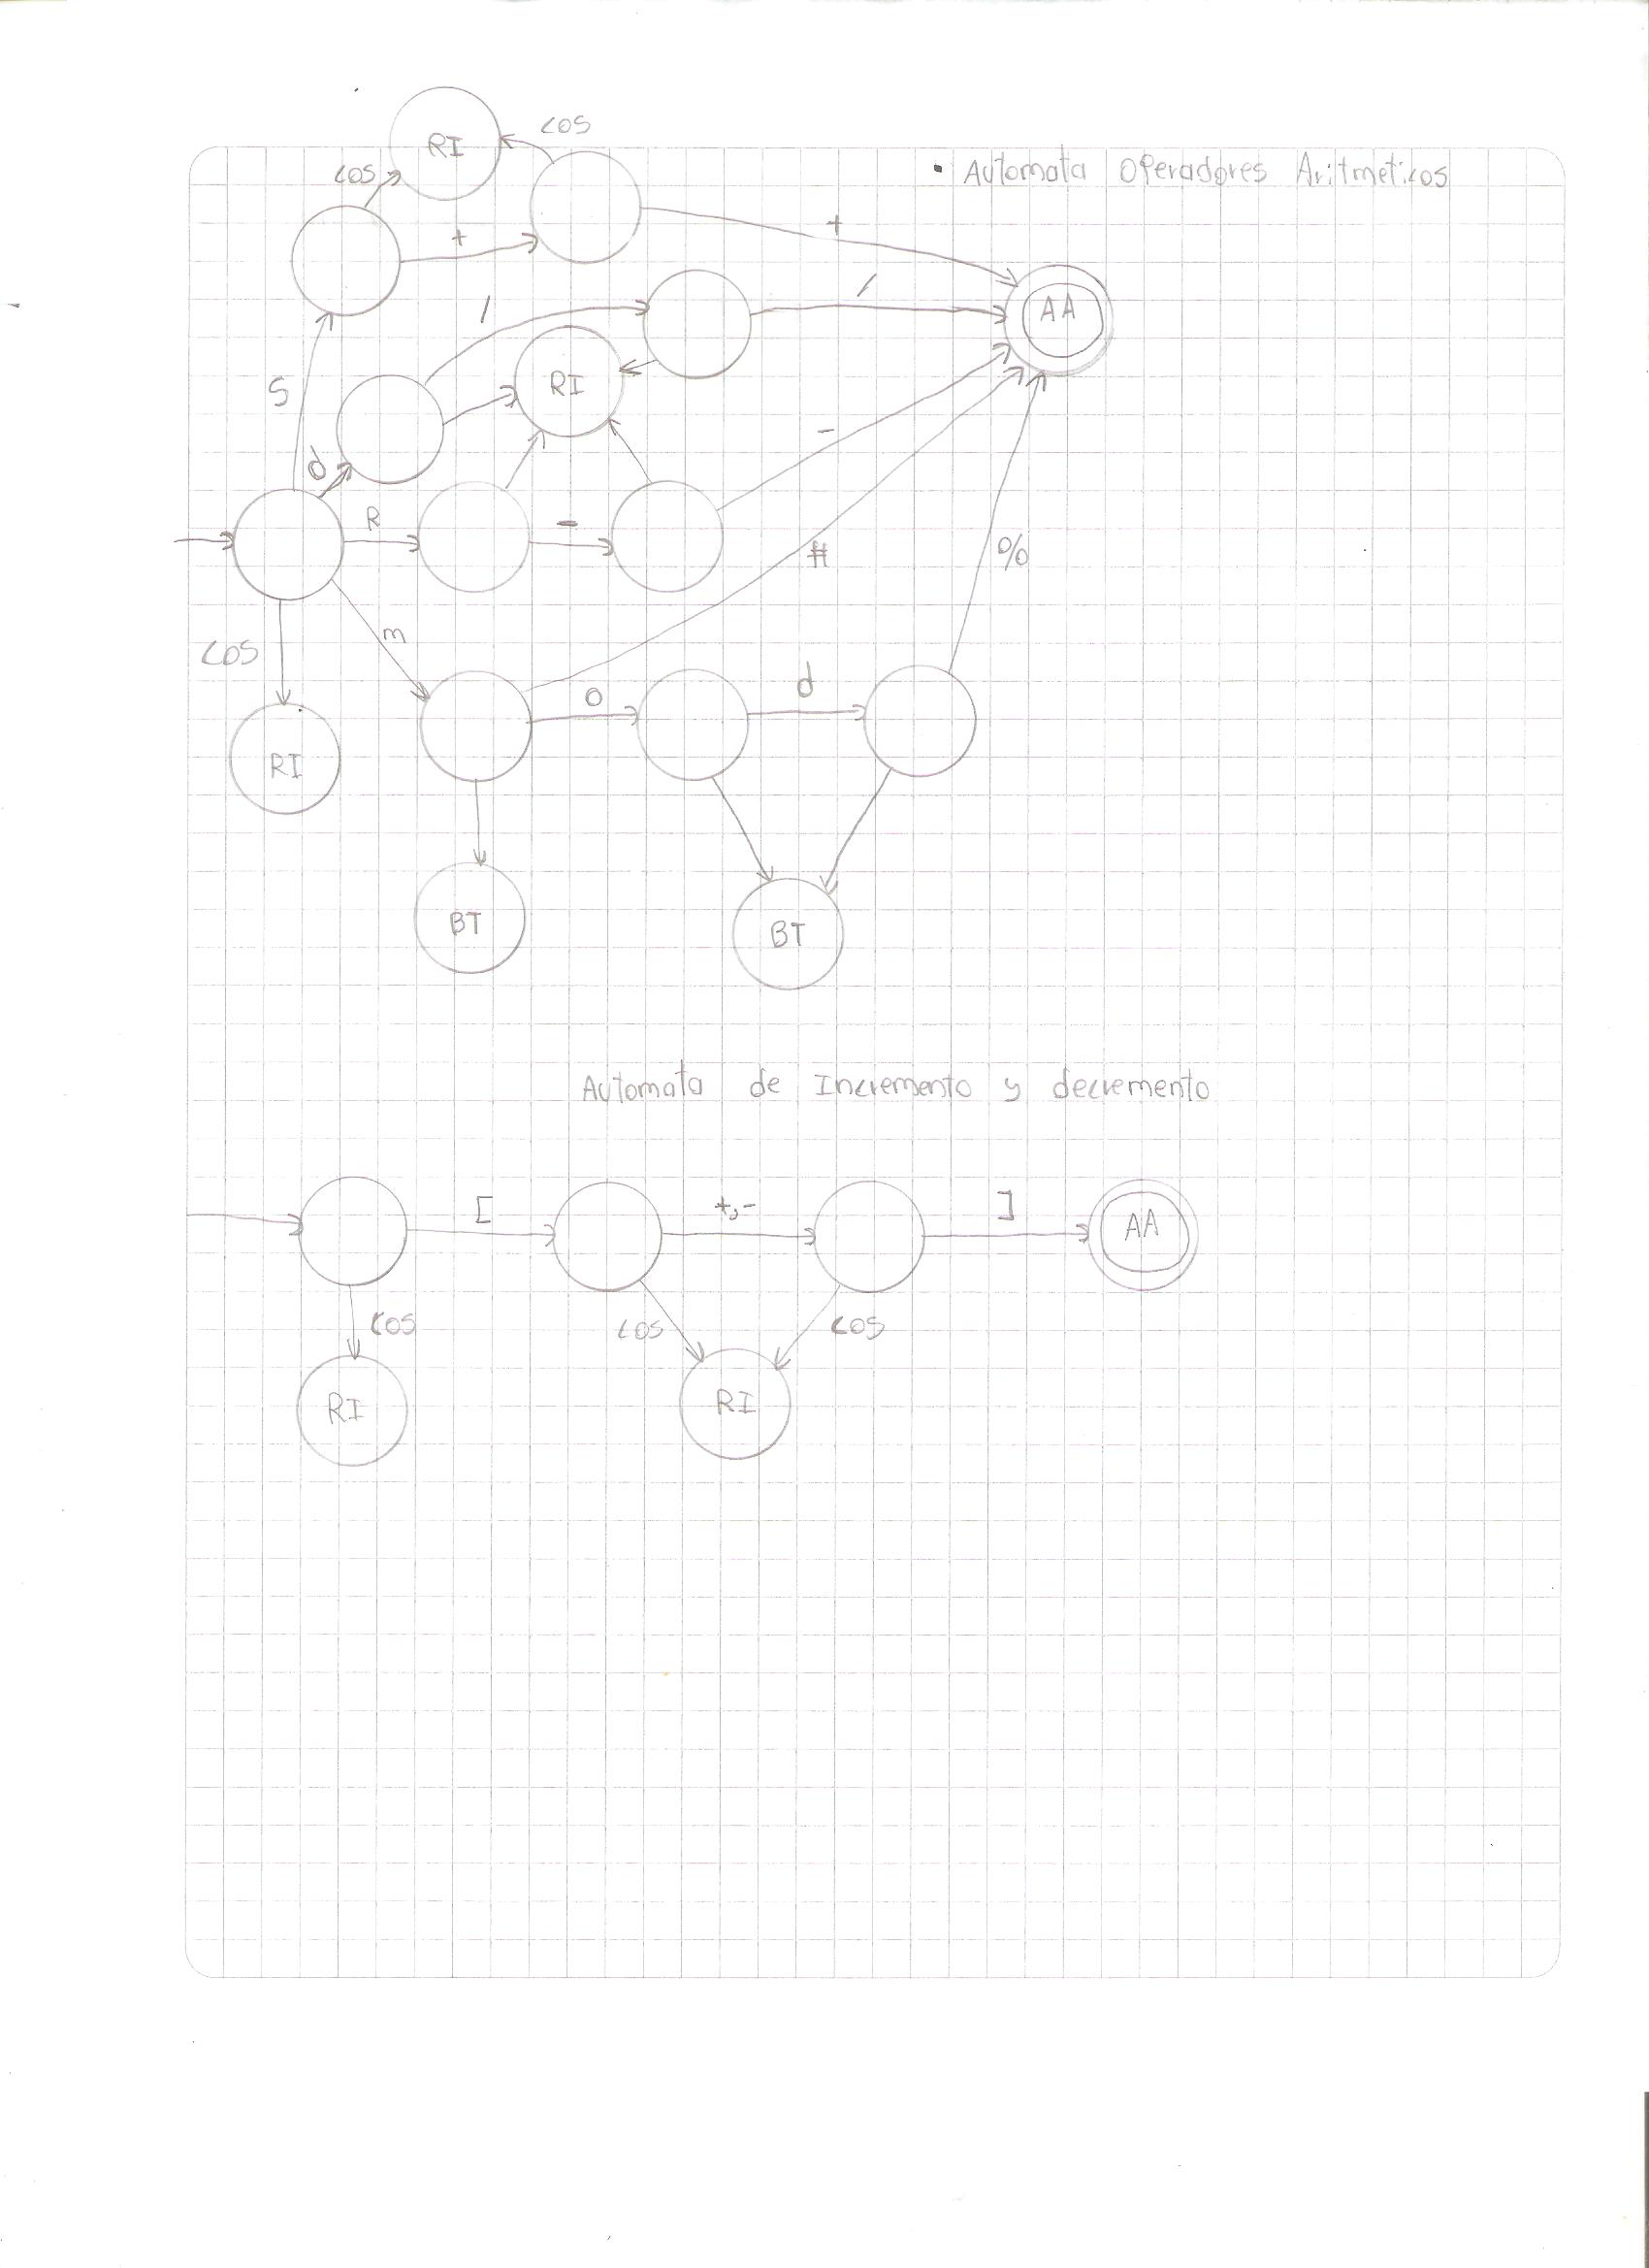 RI
cos
• Automata Operadores Aritmeticos
cos
+
+
/
/
AA
S
RI
d
-
R
-
#
%
m
cos
o
d
RI
BT
BT
Automata de Incremento y decremento
[
+,-
]
AA
cos
cos
cos
RI
RI